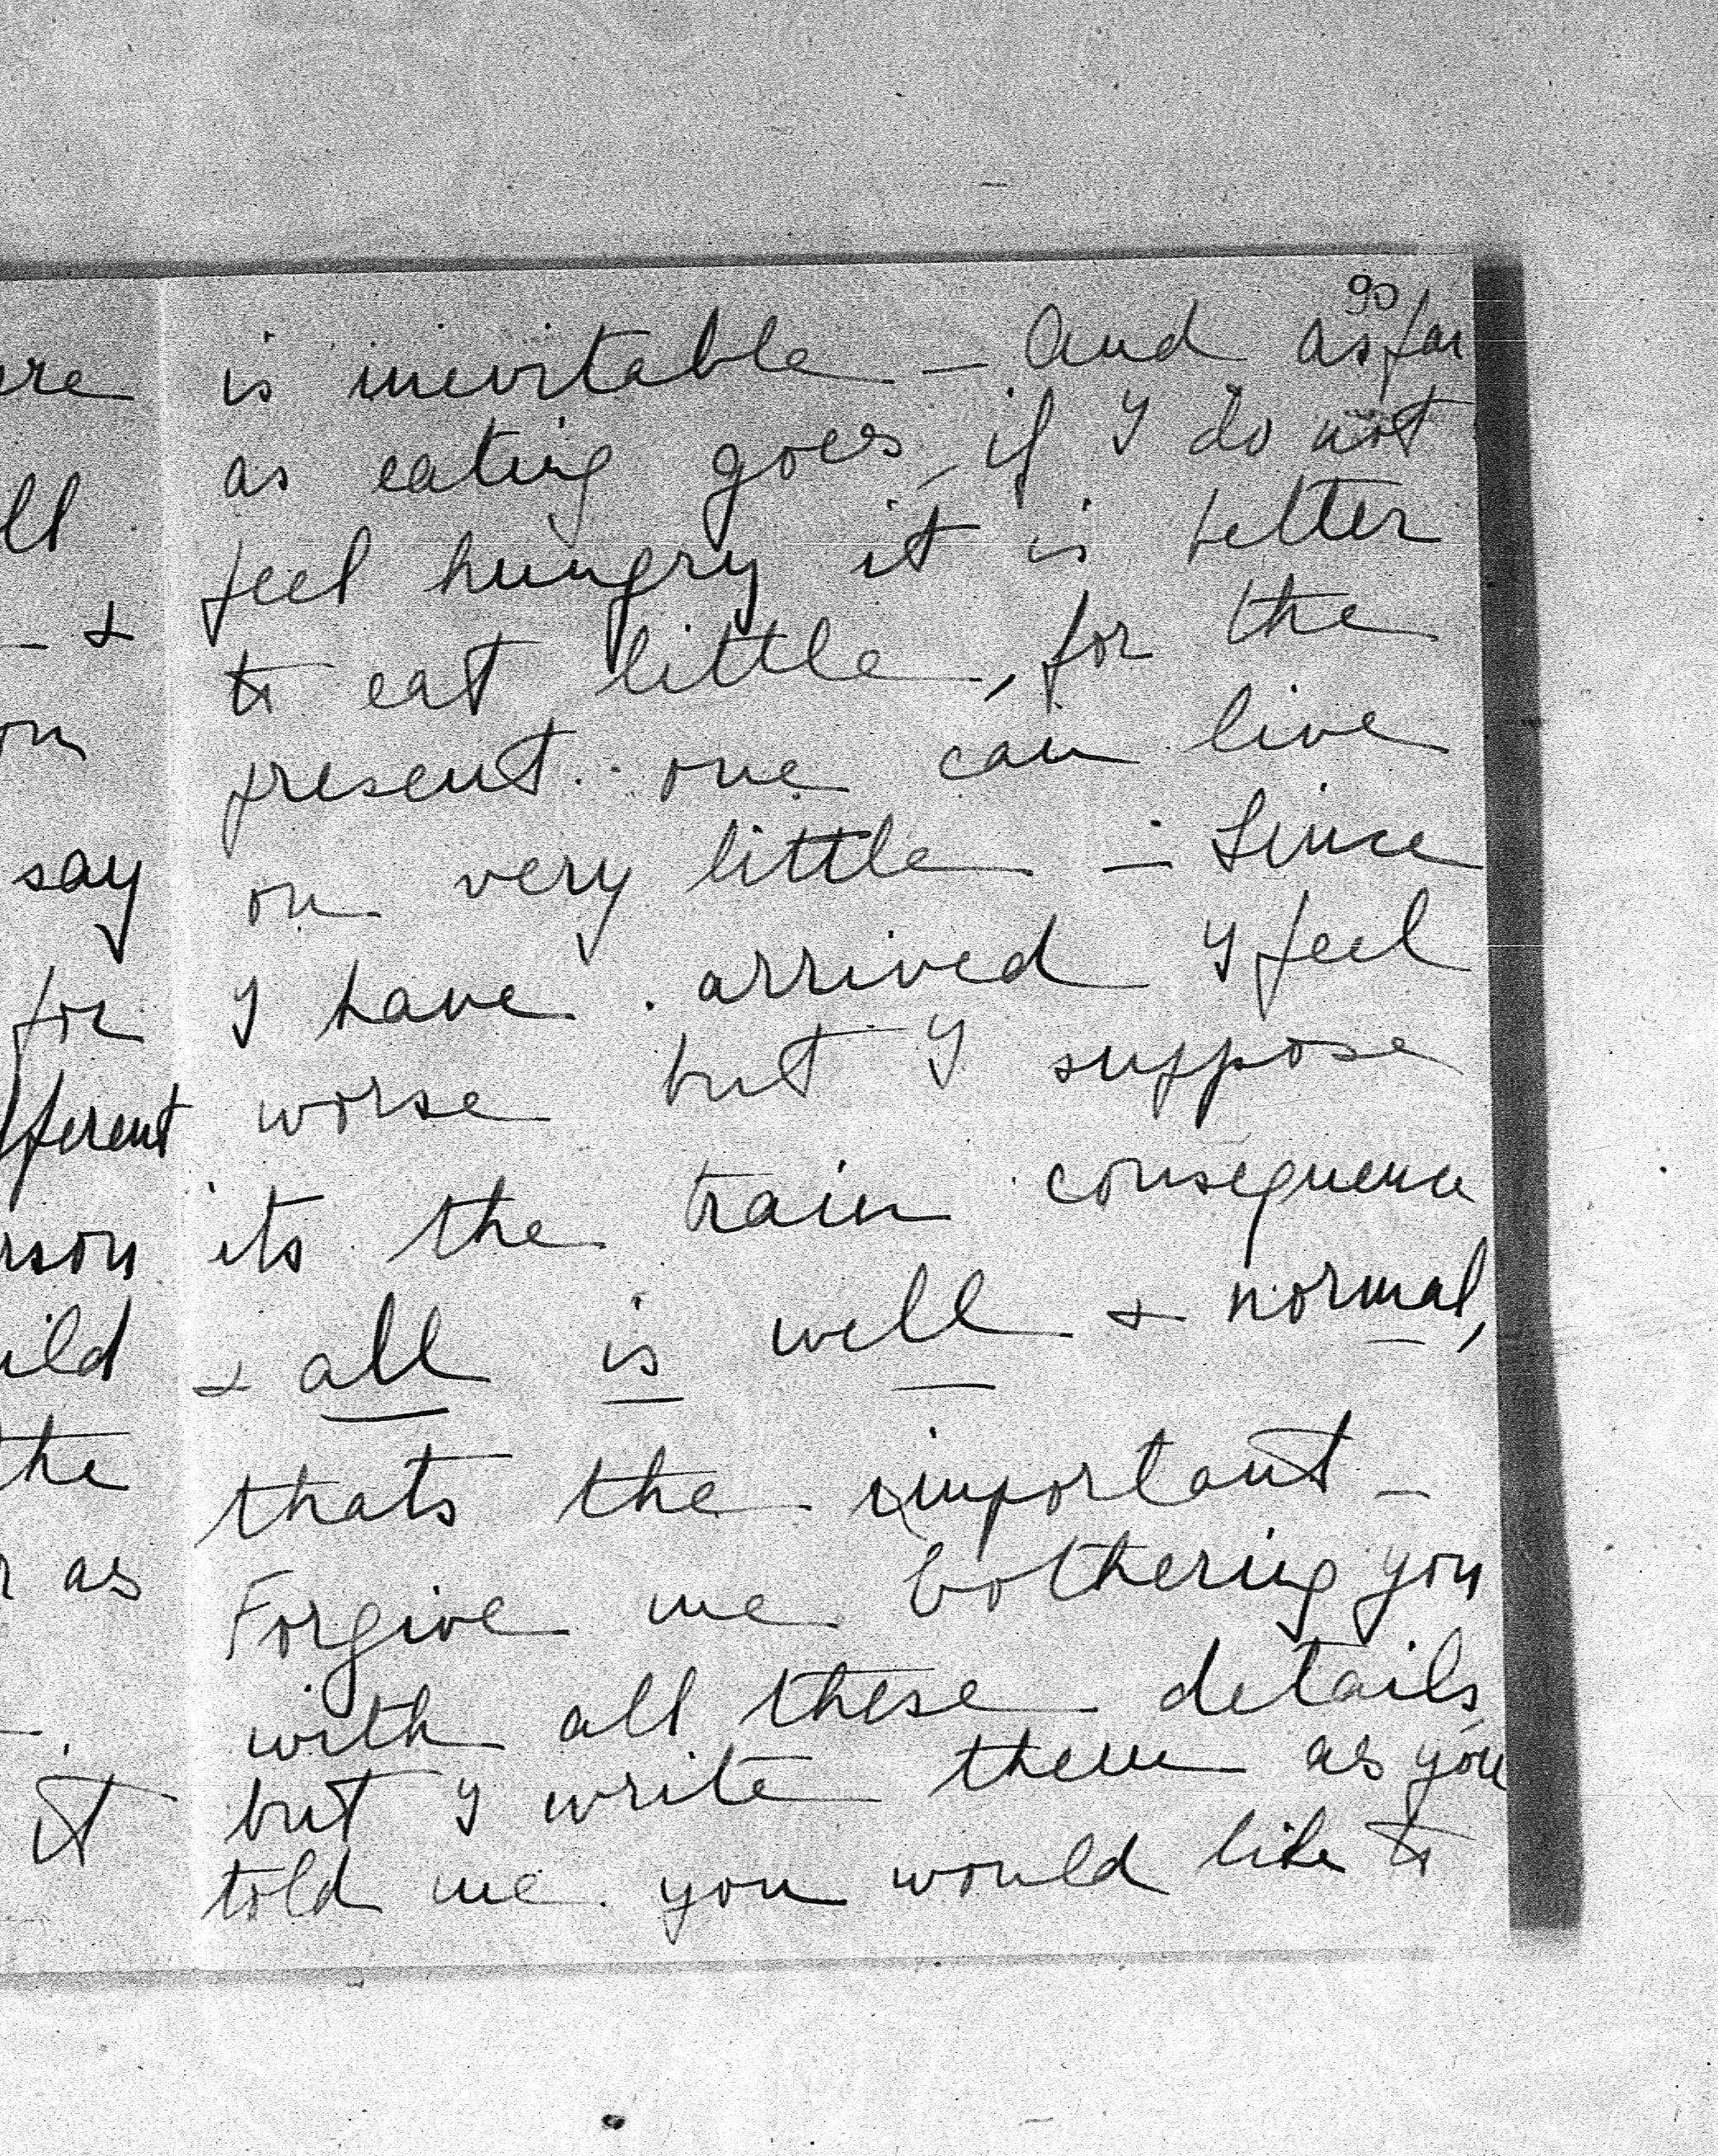 90
is inevitable – And as far
as eating goes, if I do not
feel hungry it is better
to eat little, for the
present one can live
on very little – Since
I have arrived I feel
worse but I suppose
its the train consequence
& all is well & normal,
thats the important –
Forgive me bothering you
with all these details
but I write them as you
told me you would like to
say
for
the
as
it